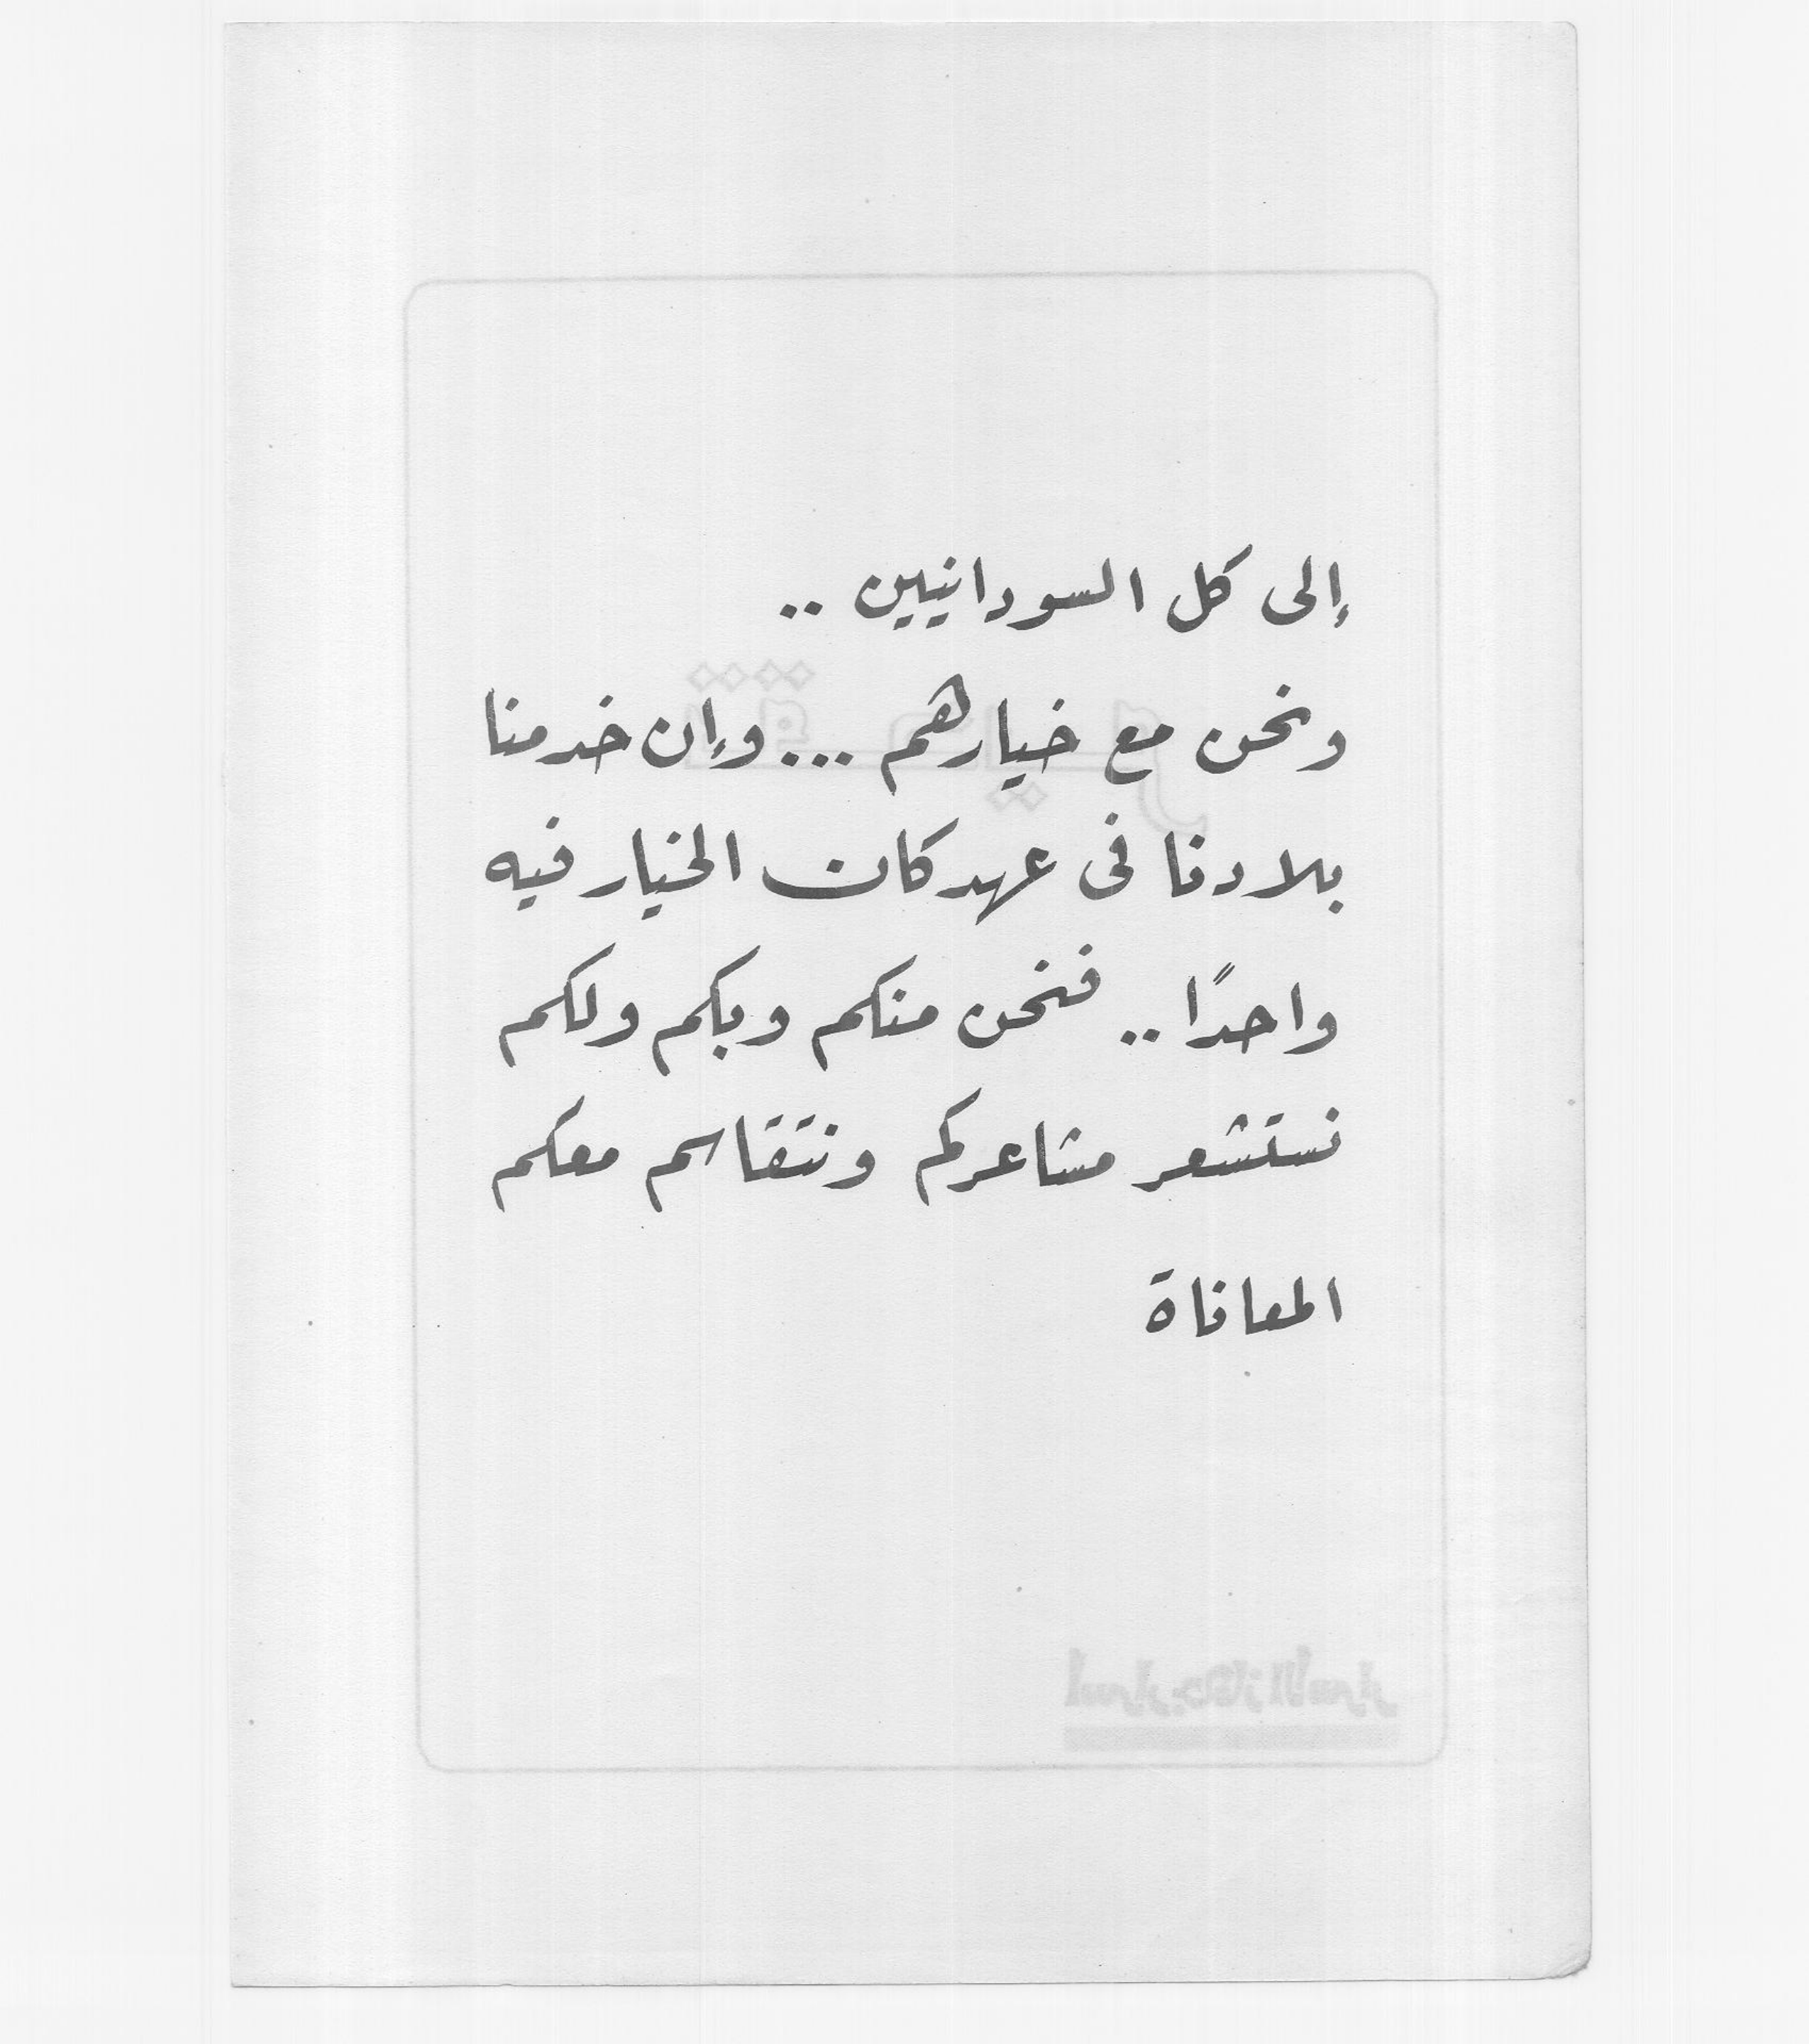 إلى كل السودانيين ..
ونحن مع خيارهم ... وإن خدمنا
بلادنا فى عهد كان الخيار فيه
واحدًا .. فنحن منكم وبكم ولكم
نستشعر مشاعركم ونتقاسم معكم
المعاناة